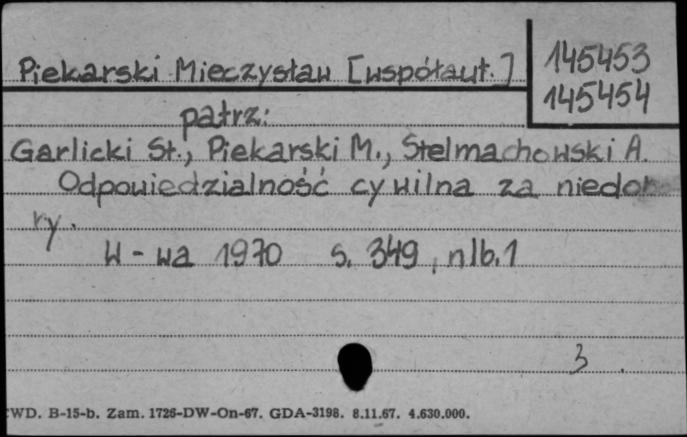 Piekarski Mieczysław [współaut.]
145453
145454
patrz:
Garlicki St., Piekarski M., Stelmachowski A.
Odpowiedzialność cywilna za niedobo
ry.
W-wa 1970 s. 349, nlb. 1
3
WD. B-15-b. Zam. 1726-DW-On-67. GDA-3198. 8.11.67. 4.630.000.